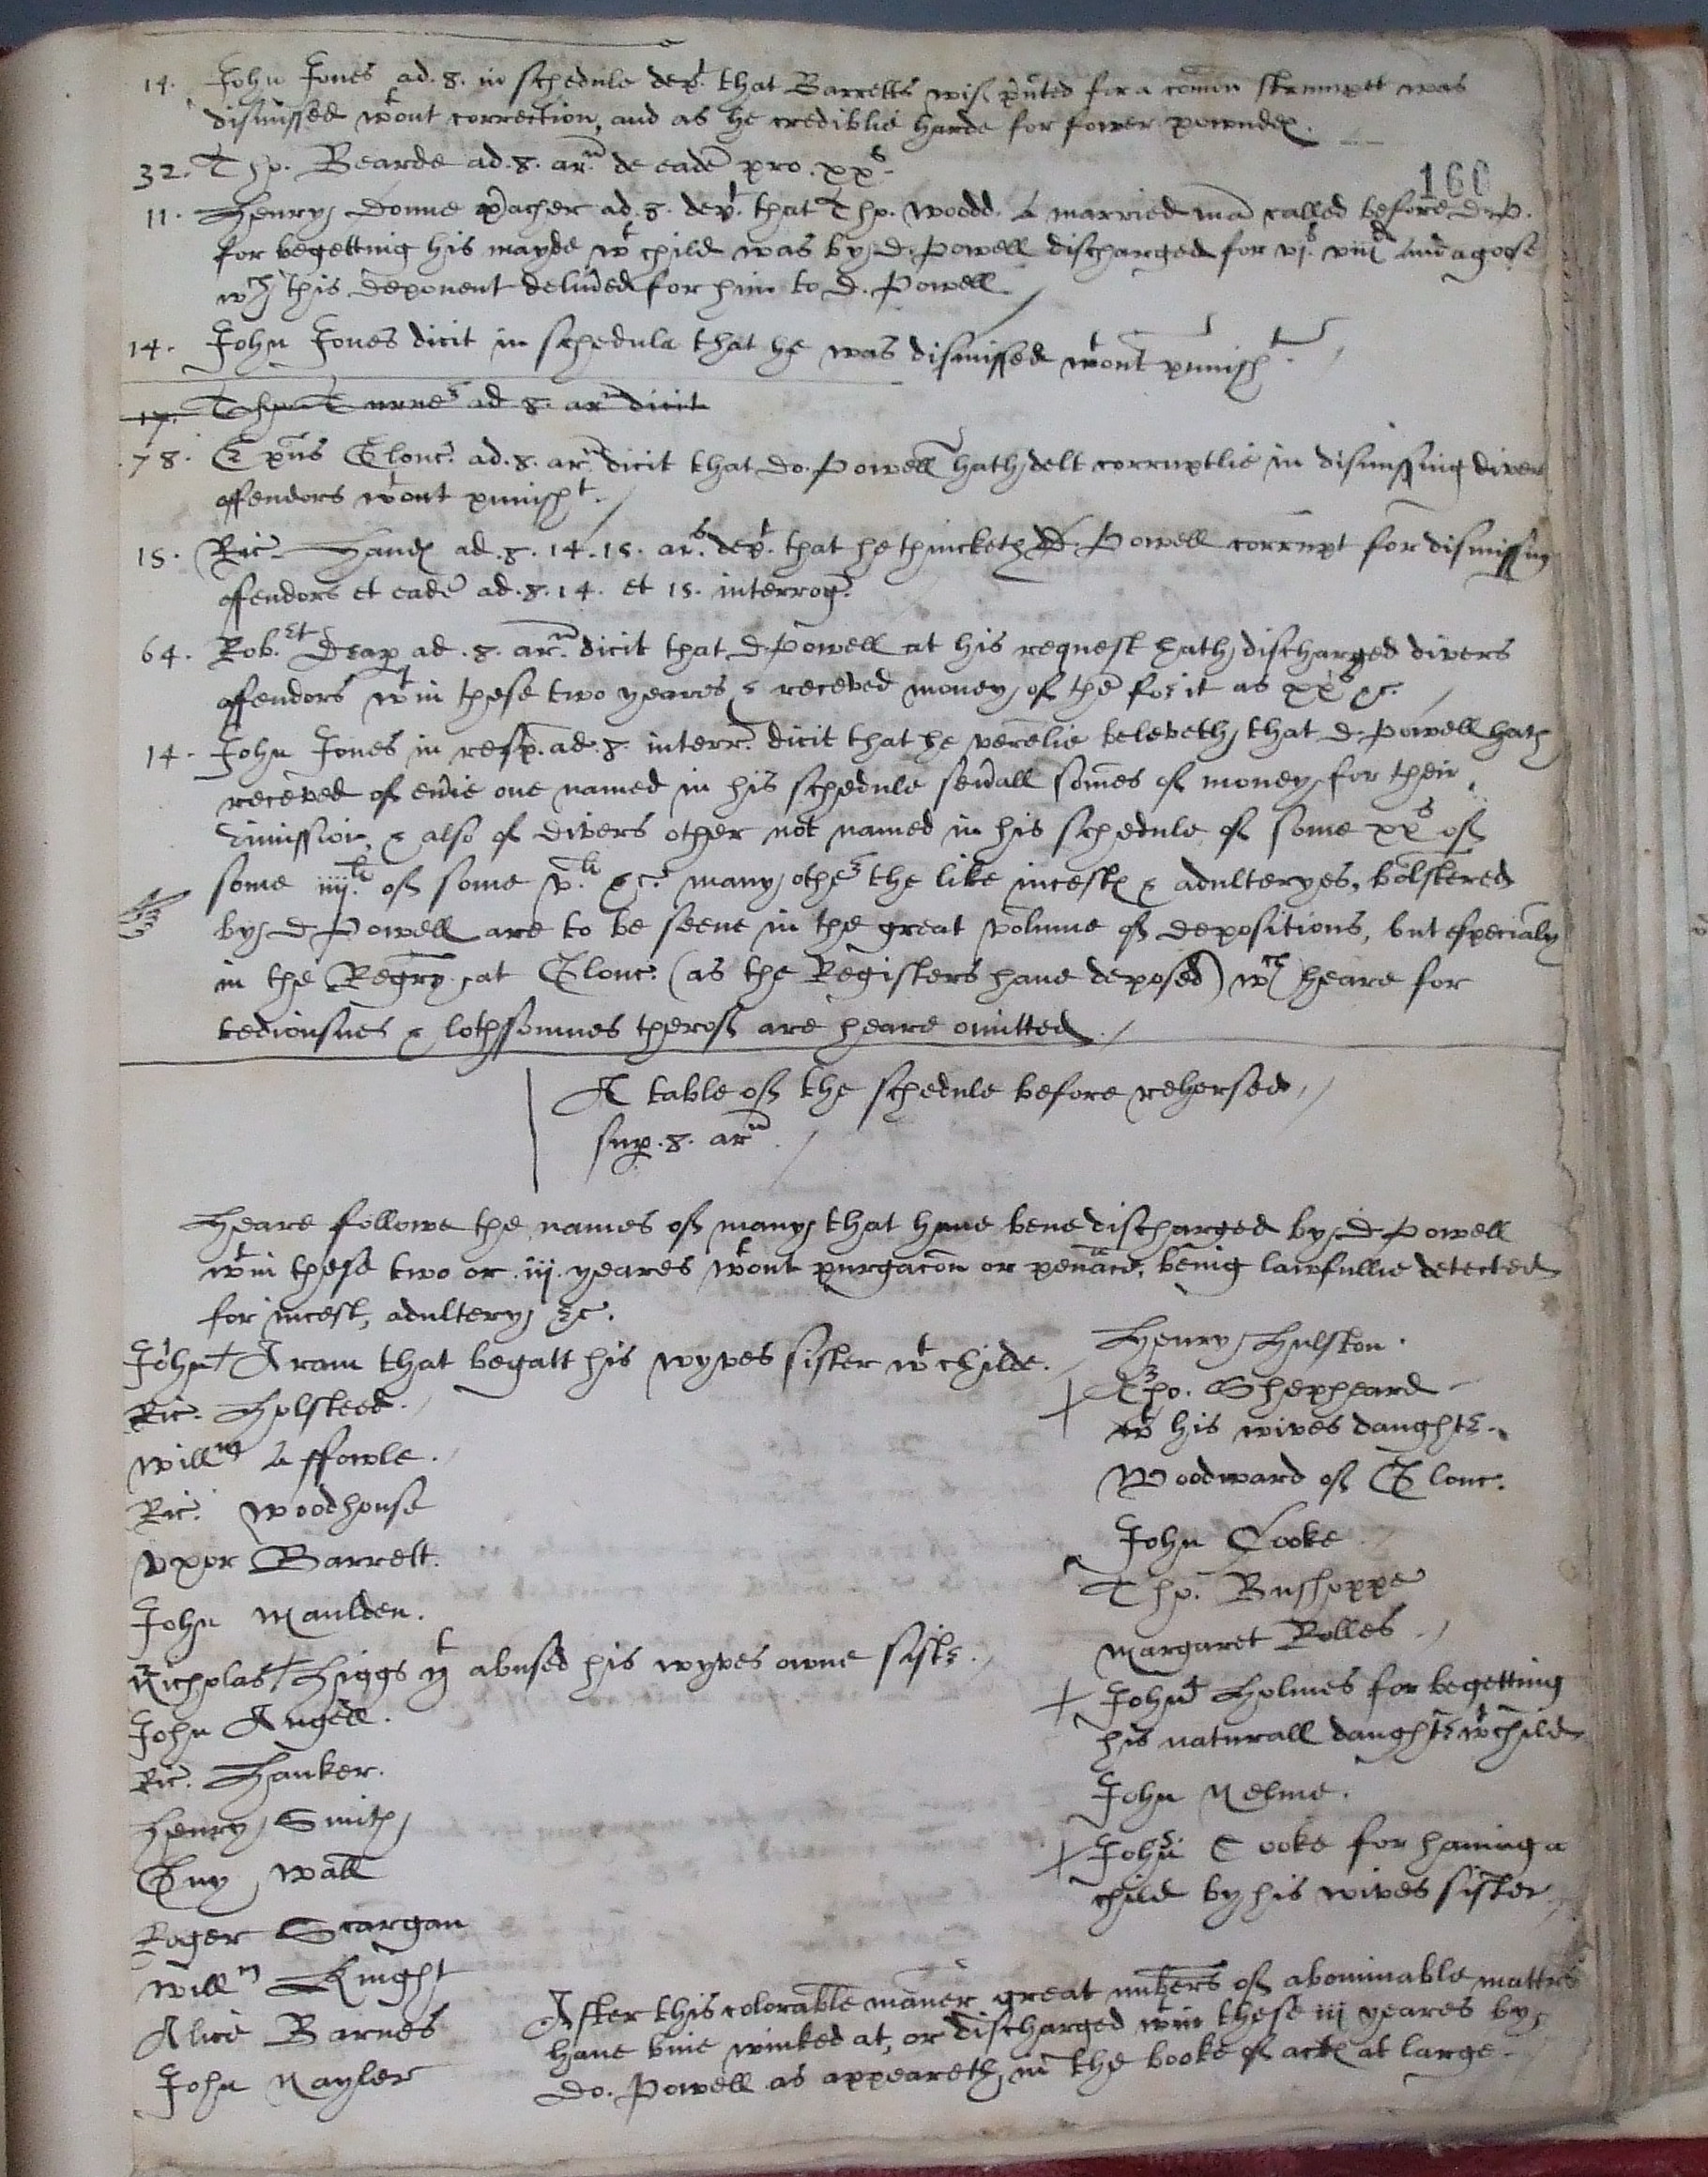 14. John Jones ad. 8. in schedule dept. that Barretts wif pñted for a comõn strumpet was
dismissed wtout correction, and as he crediblie harde for fower powndes.
160
32. Tho. Bearde ad. 8. arm de eadẽ pro. xxs.
11. Henry Donne p̃acher ad. 8. dept. that Tho. Woodd. a married mã called before D.P.
for begetting his mayde wt child was by D. Powell discharged for vjs. viijd and a goose
wch this deponent deliũed for him to D. Powell
14. John Jones dicit in schedula that he was dismissed wtout punisht.
17. Tho. Turner ad. 8. arm dicit
78. Ep̃us Glouc. ad. 8. arm dicit that Do. Powell hath delt corruptlie in dismissing divers
offendors wtout punisht.
15. Ric. Hands ad. 8. 14. 15. ars. dept. that he thincketh D. Powell corrupt for dismissing
offendors et eadẽ ad. 8. 14. et 15. interrog.
64. Robt. Deap ad. 8. arm. dicit that D. Powell at his request hath discharged divers
offendors wtin these two yeares & receved money of thẽ for it as xxs &c.
14. John Jones in resp. ad. 8. interr. dicit that he verelie beleveth that D. Powell hath
receved of eũie one named in his schedule seũall som̃es of money for their
dimission, & also of divers other not named in his schedule, of some xxs of
some iiijli. of some v.li &c. many other the like incests & adulteryes, bolstered
by D. Powell are to be seene in the great volume of depositions, but especialy
in the Regrỹ at Glouc. (as the Registers have deposed) wch heare for
tediousnes & lothsomnes therof are heare omitted.
A table of the schedule before rehersed,
sup. 8. arm.
Heare followe the names of many that have bene discharged by D. Powell
wtin these two or iij. yeares wtout purgacõn or penãce, being lawfullie detected
for incest, adultery &c.
John Aram that begatt his wyves sister wt childe.
Ric. Holsteed.
Willm a ffowle.
Ric. Woodhouse
Vxor Barrett.
John Maulden.
Nicholas Higgs yt abused his wyves owne sister.
John Angell.
Ric. Hanker.
Henry Smith
Guy Wall
Roger Scargan
Willm Knight
Alice Barnes
John Nayler
Henry Hulston.
Tho. Shepheard
wt his wives daughter.
Woodward of Glouc.
John Cooke
Tho. Bushoppe
Margaret Rolles
John Holmes for begetting
his naturall daughter wt child
John Nelme.
John Cooke for having a
child by his wives sister
After this colorable maner great nũbers of abominable matters
have bine winked at, or discharged wtin these iij yeares by
Do. Powell as appeareth in the booke of acts at large.